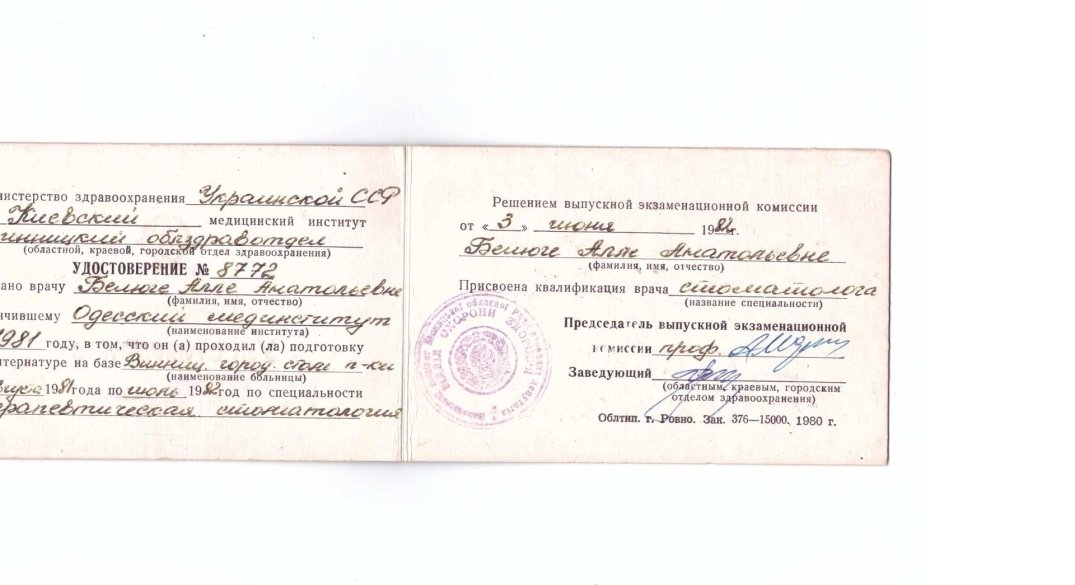 нистерство здравоохранения Украинской ССР
Киевский медицинский институт
инницкий облздравотдел
(областной, краевой, городской отдел здравоохранения)
УДОСТОВЕРЕНИЕ № 8772
ано врачу Белюге Алле Анатольевне
(фамилия, имя, отчество)
нчившему Одесский мединститут
(наименование института)
1981 году, в том, что он (а) проходил (ла) подготовку
нтернатуре на базе Винниц. город. стом п-ки
(наименование больницы)
вгуста 1981года по июнь 1982год по специальности
ерапевтическая стоматология
Решением выпускной экзаменационной комиссии
от «3» июня 1982г.
Белюге Алле Анатольевне
(фамилия, имя, отчество)
Присвоена квалификация врача стоматолога
(название специальности)
Председатель выпускной экзаменационной
комиссии проф.
Заведующий
(областным, краевым, городским
отделом здравоохранения)
Облтип. г. Ровно. Зак. 376—15000. 1980 г.
ОХОРОНИ ЗДОРОВ'Я